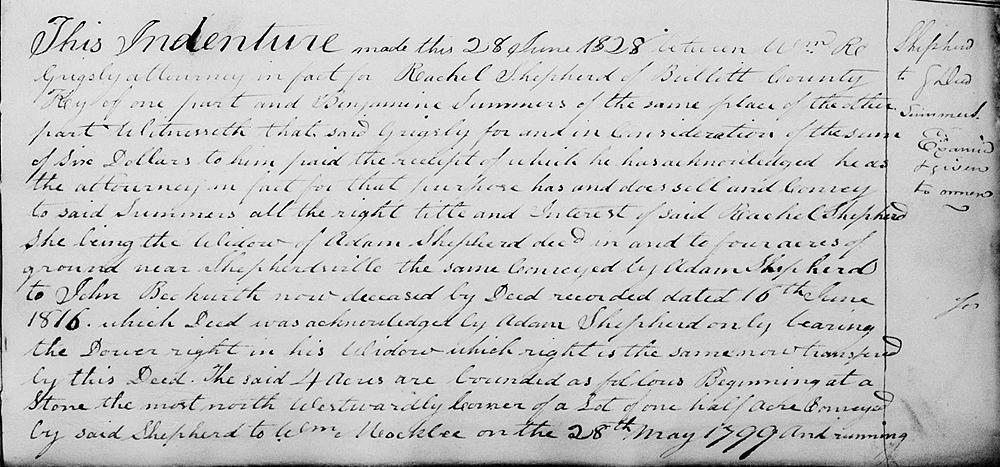 This Indenture made this 28 June 1828 between Wm. R.
Grigsly attourney in fact for Rachel Shepherd of Bullott County
Ky of one part and Benjamine Summers of the same place of the other
part Witnesseth that said Grigsly for and in Consideration of the sum
of Six Dollars to him paid the receipt of which he has acknowledged he as
the attourney in fact for that purpose has and does sell and Convey
to said Summers all the right title and Interest of said Rachel Shepherd
She being the Widow of Adam Shepherd decd in and to four acres of
ground near Shepherdsville the same Conveyed by Adam Shepherd
to John Beckwith now deceased by Deed recorded dated 16th June
1816. which Deed was acknowledged by Adam Shepherd only leaving
the Dower right in his Widow which right is the same now transferd
by this Deed. The said 4 Acres are bounded as follows Beginning at a
Stone the most north Westwardly Corner of a Lot of one half Acre Conveyed
by said Shepherd to Wm. Mockbee on the 28th May 1799 And running
Shepherd
to Deed
Summers
Examd
& given
to owner